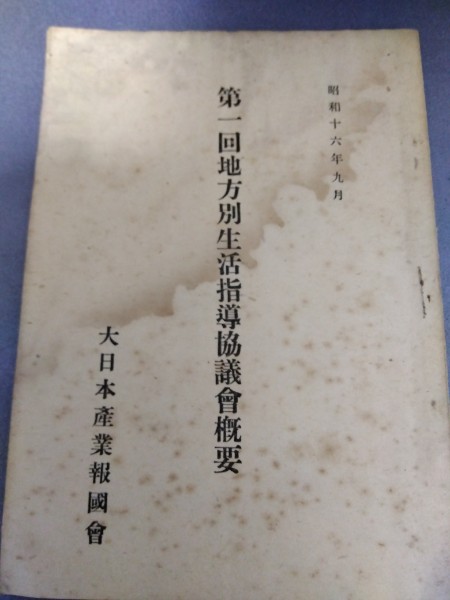 昭和十六年九月
第一回地方別生活指導協議會概要
大日本產業報國會